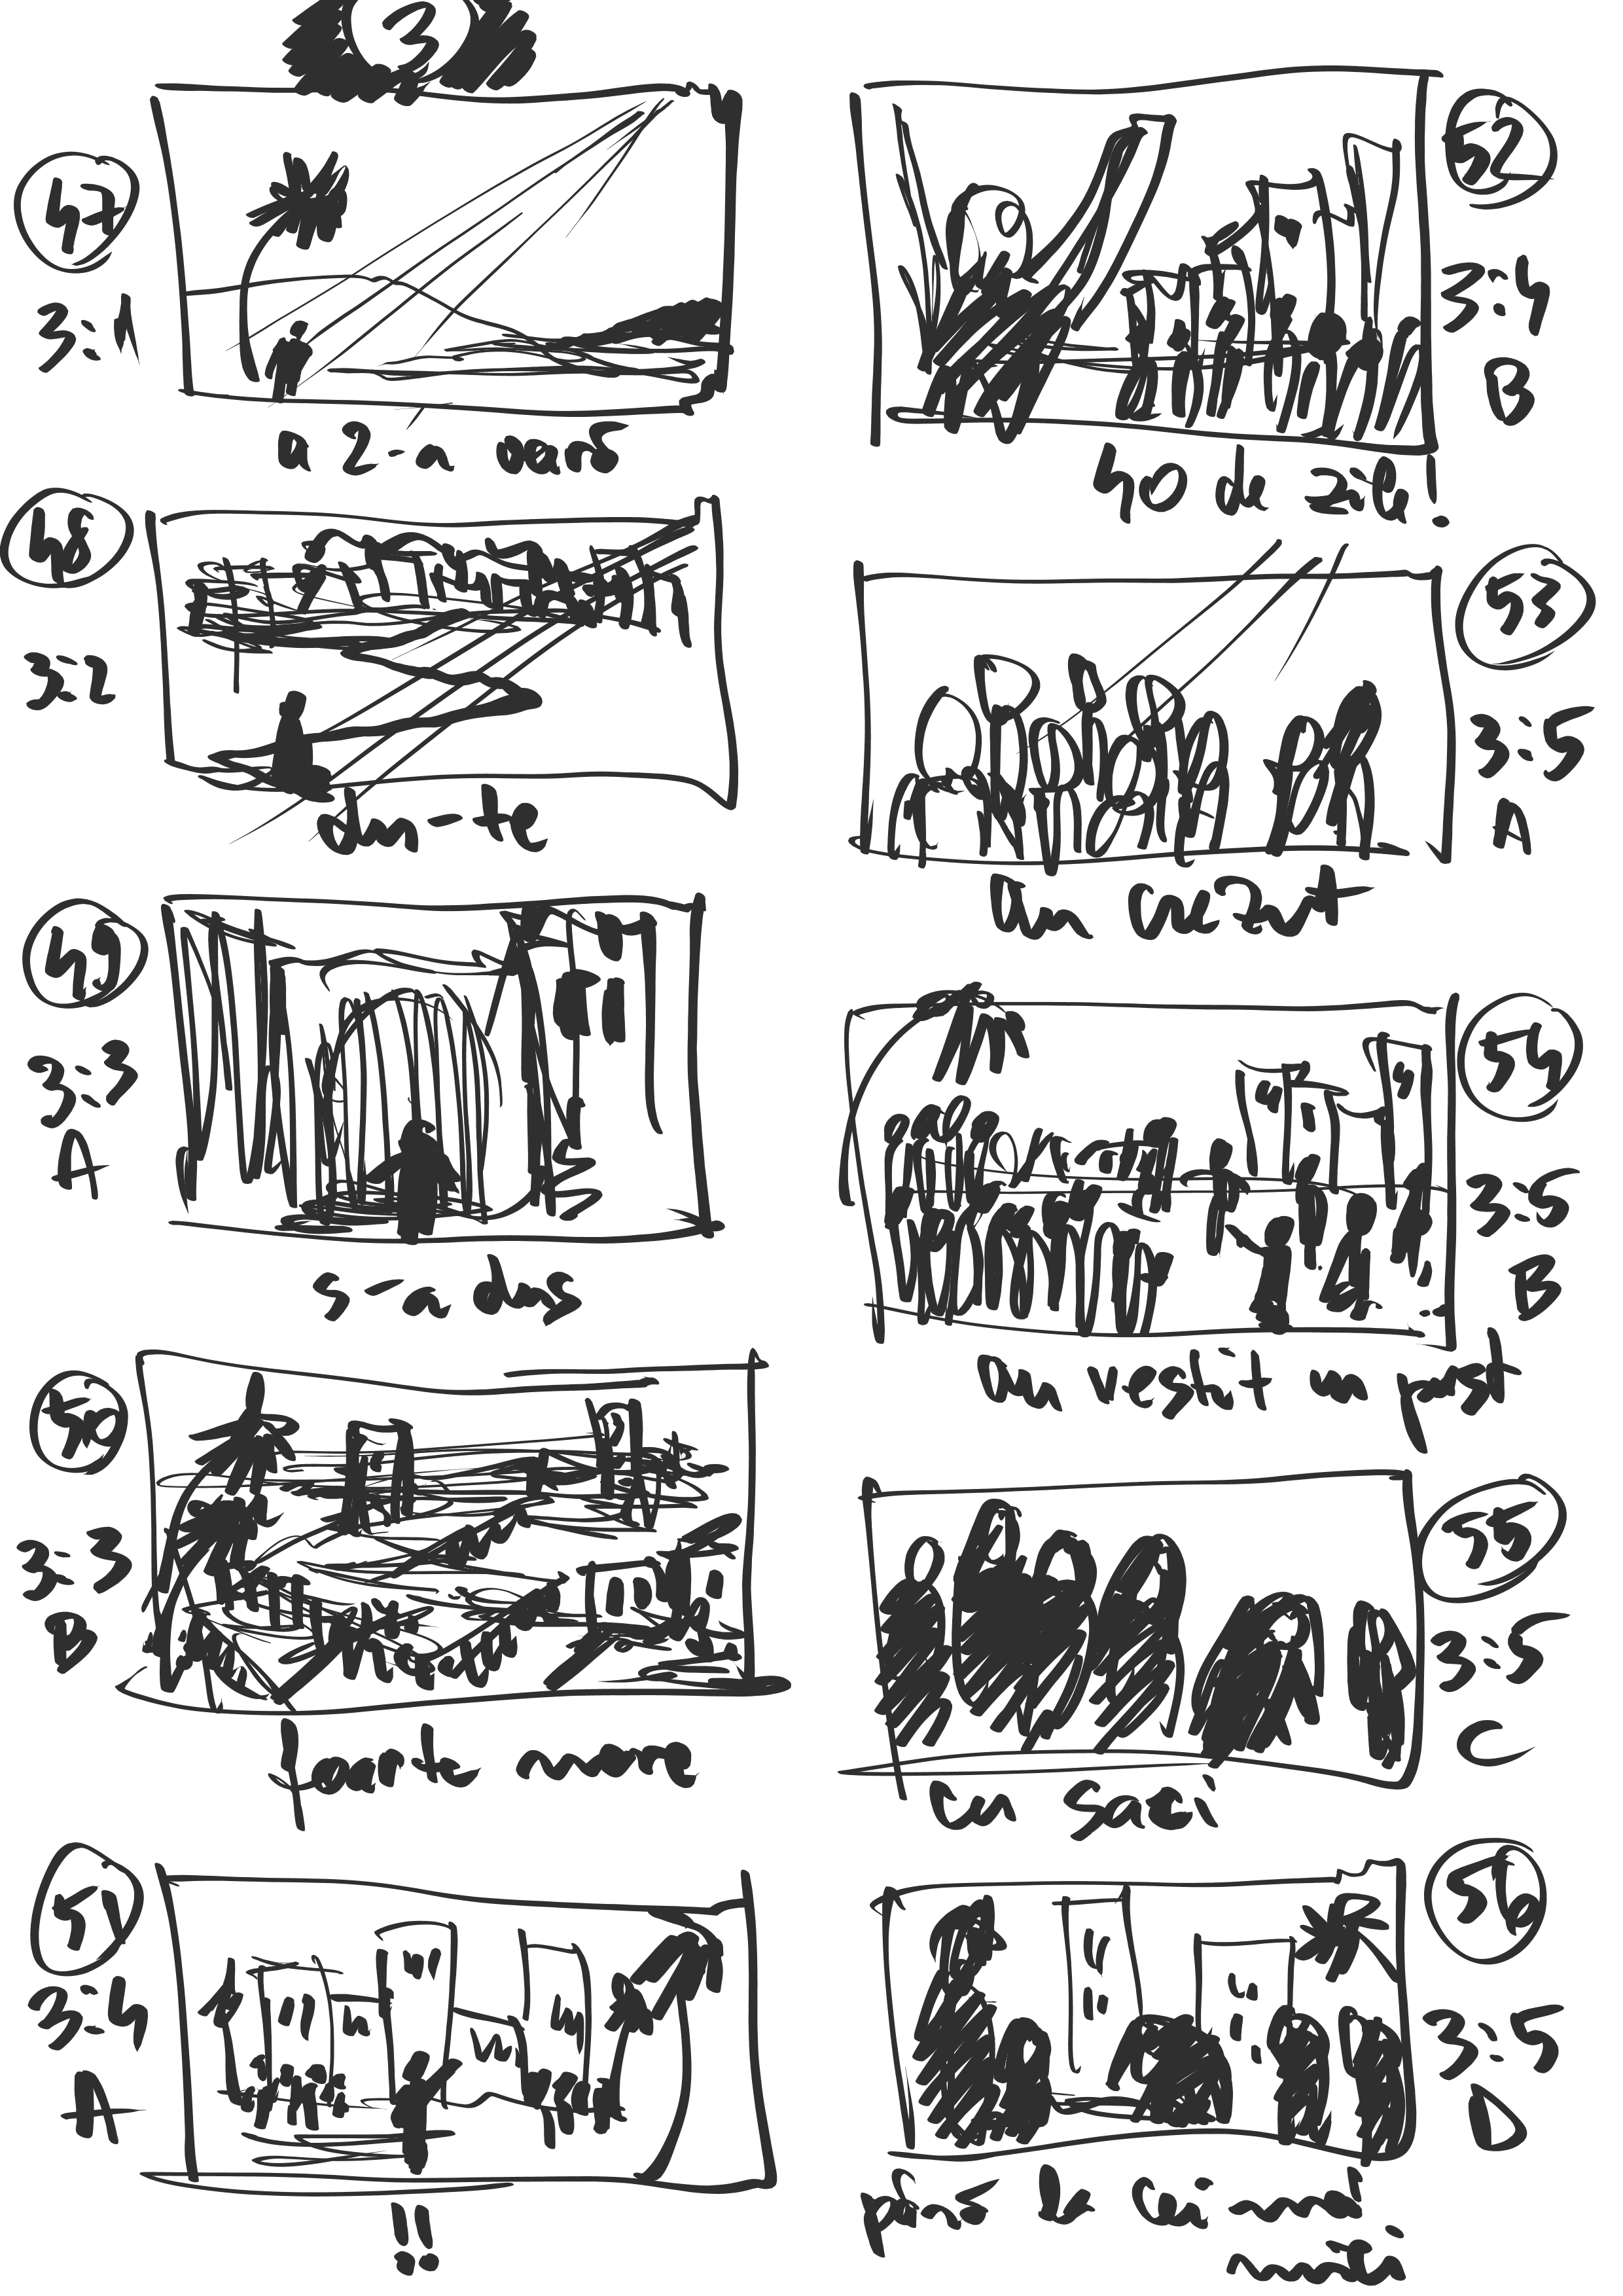 3
47
3:1
a 2-a oară
48
3:2
du-te
49
3:3
A
s-a dus
50
3:3
B
foarte mare
51
3:4
A
!!
52
3:4
B
40 de zile!
53
3:5
A
au crezut
54
3:5
B
au vestit un post
55
3:5
C
cu saci
56
3:5
D
până la cei mai
mici